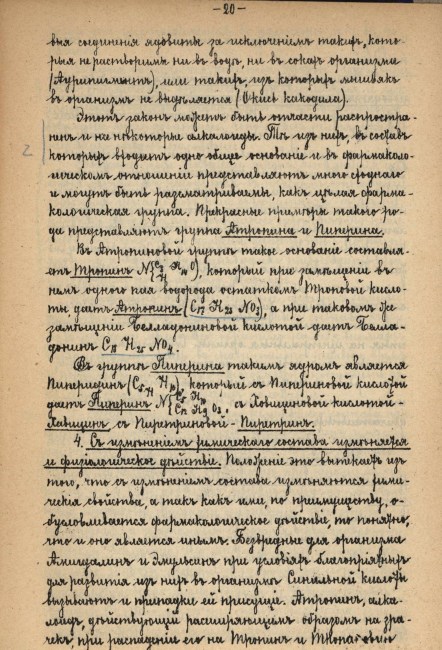 -20-
выя соединенія ядовиты за исключеніемъ такихъ, кото-
рыя не растворимы ни въ водѣ, ни въ сокахъ организма
(Аурипигментъ), или такихъ, изъ которыхъ мышьякъ
въ организмѣ не выдѣляется (Окись какодила).
Этотъ законъ можетъ быть отчасти распростра-
ненъ и на некоторые алкалоиды. Тѣ изъ нихъ, въ составъ
которыхъ входитъ одно общее основаніе и въ фармаколо-
гическомъ отношеніи представляютъ много сходнаго
и могутъ быть разсматриваемы, какъ цѣлая фарма-
кологическая группа. Прекрасные примѣры такого ро-
да представляютъ группа Атропина и Пиперина.
Въ Атропиновой группѣ такое основаніе составля-
етъ Тропинъ, который при замѣщеніи въ
немъ одного пая водорода остаткомъ Троповой кисло-
ты даетъ Атропинъ (C17 H23 NO3), а при таковомъ же
замѣщеніи Белладониновой кислотой даетъ Белла-
донинъ
Въ группѣ Пиперина такимъ ядромъ является
Пиперидинъ, который съ Пипериновой кислотой
даетъ Пиперинъ, съ Хавициновой кислотой-
Хавицинъ, съ Пиретриновой- Пиретринъ.
4. Съ измѣненіемъ химическаго состава измѣняется
и физіологическое дѣйствіе. Положеніе это вытекаетъ изъ
того, что съ измѣненіемъ состава измѣняются хими-
ческія свойства, а такъ какъ ими, по преимуществу, о-
бусловливается фармакологическое дѣйствіе, то понятно,
что и оно является инымъ. Безвредные для организма
Амигдалинъ и Эмульсинъ при условіяхъ благопріятныхъ
для развитія изъ нихъ въ организмѣ Синильной кислоты
вызываютъ и припадки ей присущіе. Атропинъ, алка-
лоидъ дѣйствующій расширяющимъ образомъ на зра-
чекъ, при распаденіи его на Тропинъ и